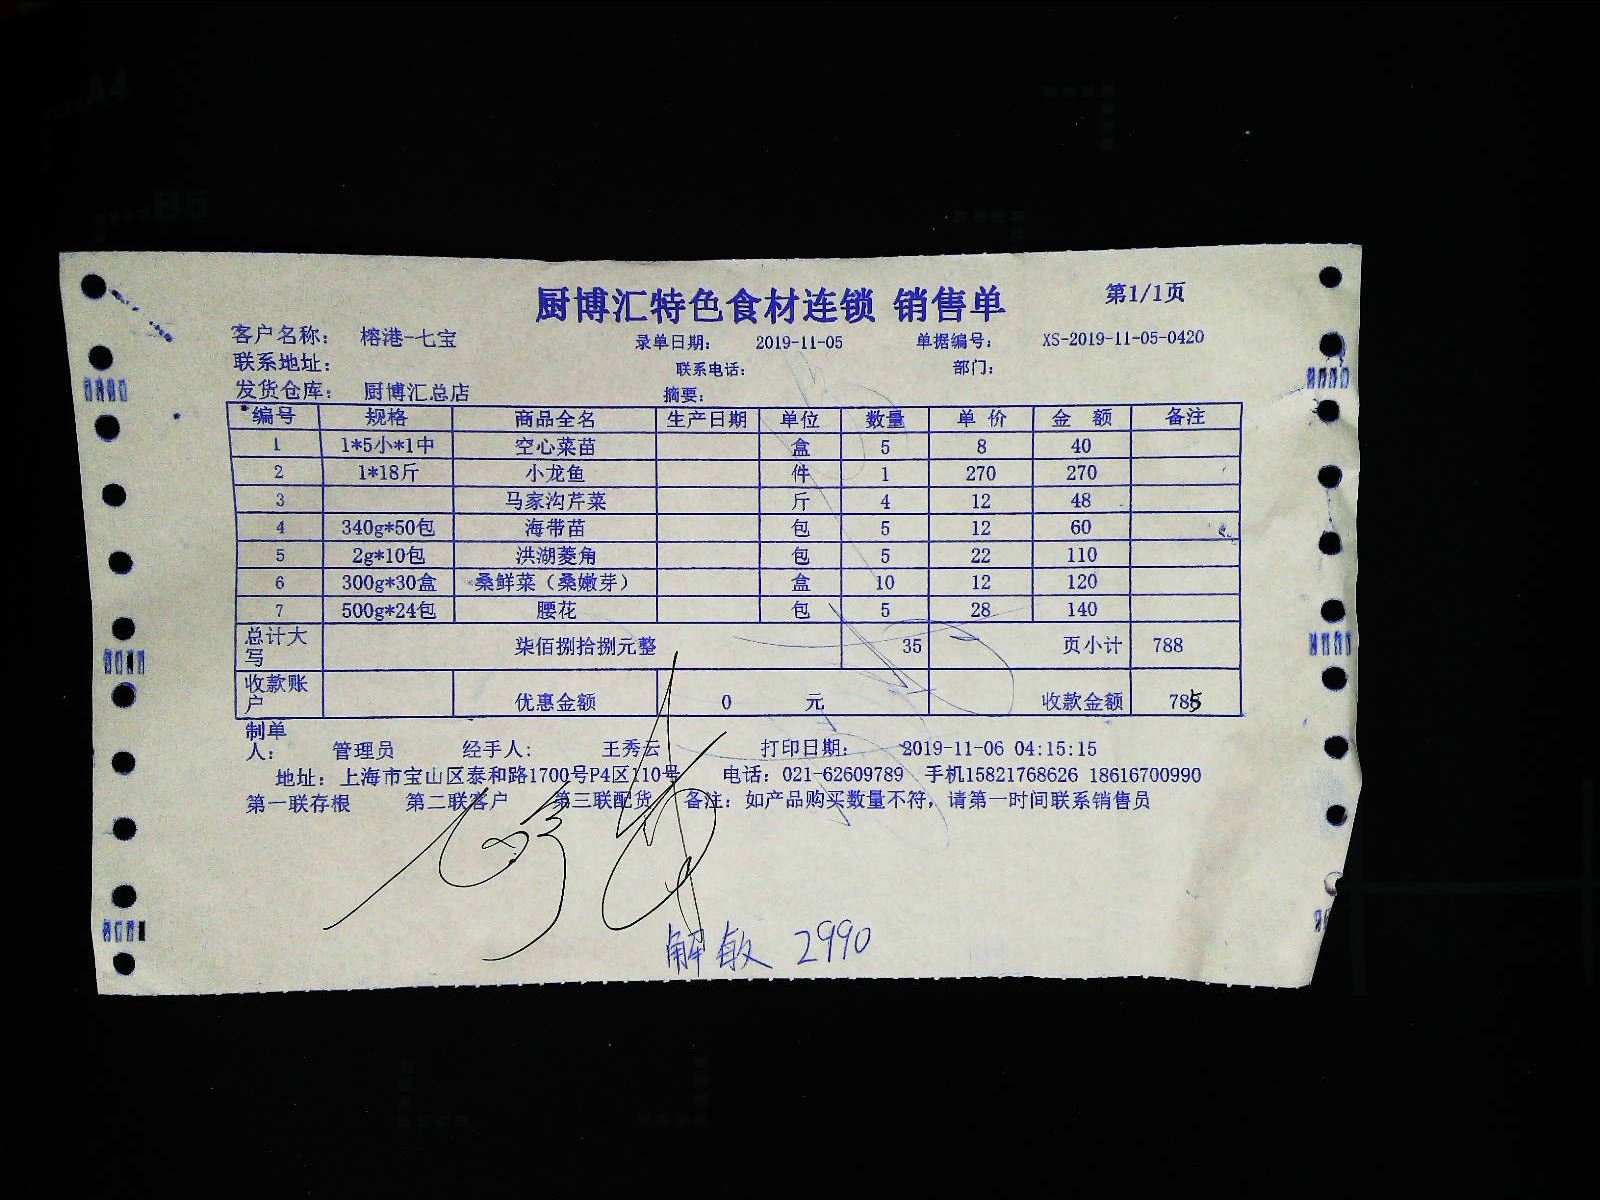 厨博汇特色食材连锁 销售单 第1/1页
客户名称: 榕港-七宝 录单日期: 2019-11-05 单据编号: XS-2019-11-05-0420
联系地址: 联系电话: 部门:
发货仓库: 厨博汇总店 摘要:
编号 规格 商品全名 生产日期 单位 数量 单价 金额 备注
1 1*5小*1中 空心菜苗 盒 5 8 40
2 1*18斤 小龙鱼 件 1 270 270
3 马家沟芹菜 斤 4 12 48
4 340g*50包 海带苗 包 5 12 60
5 2g*10包 洪湖菱角 包 5 22 110
6 300g*30盒 桑鲜菜（桑嫩芽） 盒 10 12 120
7 500g*24包 腰花 包 5 28 140
总计大写 柒佰捌拾捌元整 35 页小计 788
收款账户 优惠金额 0 元 收款金额 785
制单人: 管理员 经手人: 王秀云 打印日期: 2019-11-06 04:15:15
地址: 上海市宝山区泰和路1700号P4区110号 电话: 021-62609789 手机15821768626 18616700990
第一联存根 第二联客户 第三联配货 备注: 如产品购买数量不符, 请第一时间联系销售员
解敏 2990
A4
B5